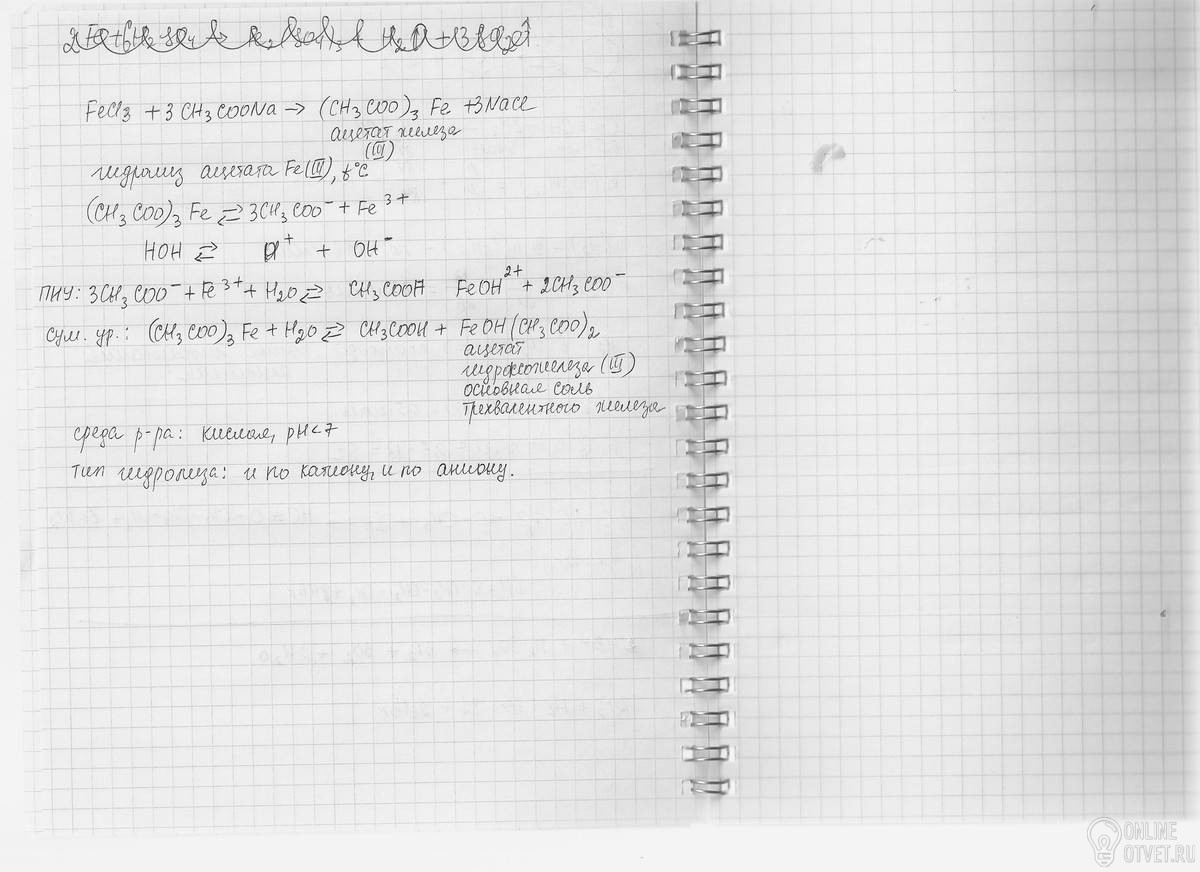 2Fe + 6H₂SO₄ → Fe₂(SO₄)₃ + H₂O + 3SO₂↑
FeCl₃ + 3CH₃COONa → (CH₃COO)₃Fe + 3NaCl
ацетат железа
(III)
гидролиз ацетата Fe(III), t°C
(CH₃COO)₃Fe ⇄ 3CH₃COO⁻ + Fe³⁺
HOH ⇄ H⁺ + OH⁻
ПИУ: 3CH₃COO⁻ + Fe³⁺ + H₂O ⇄ CH₃COOH FeOH²⁺ + 2CH₃COO⁻
сум. ур.: (CH₃COO)₃Fe + H₂O ⇄ CH₃COOH + FeOH(CH₃COO)₂
ацетат
гидроксожелеза (III)
основная соль
трехвалентного железа
среда р-ра: кислая, pH<7
тип гидролиза: и по катиону, и по аниону.
ONLINE
OTVET.RU